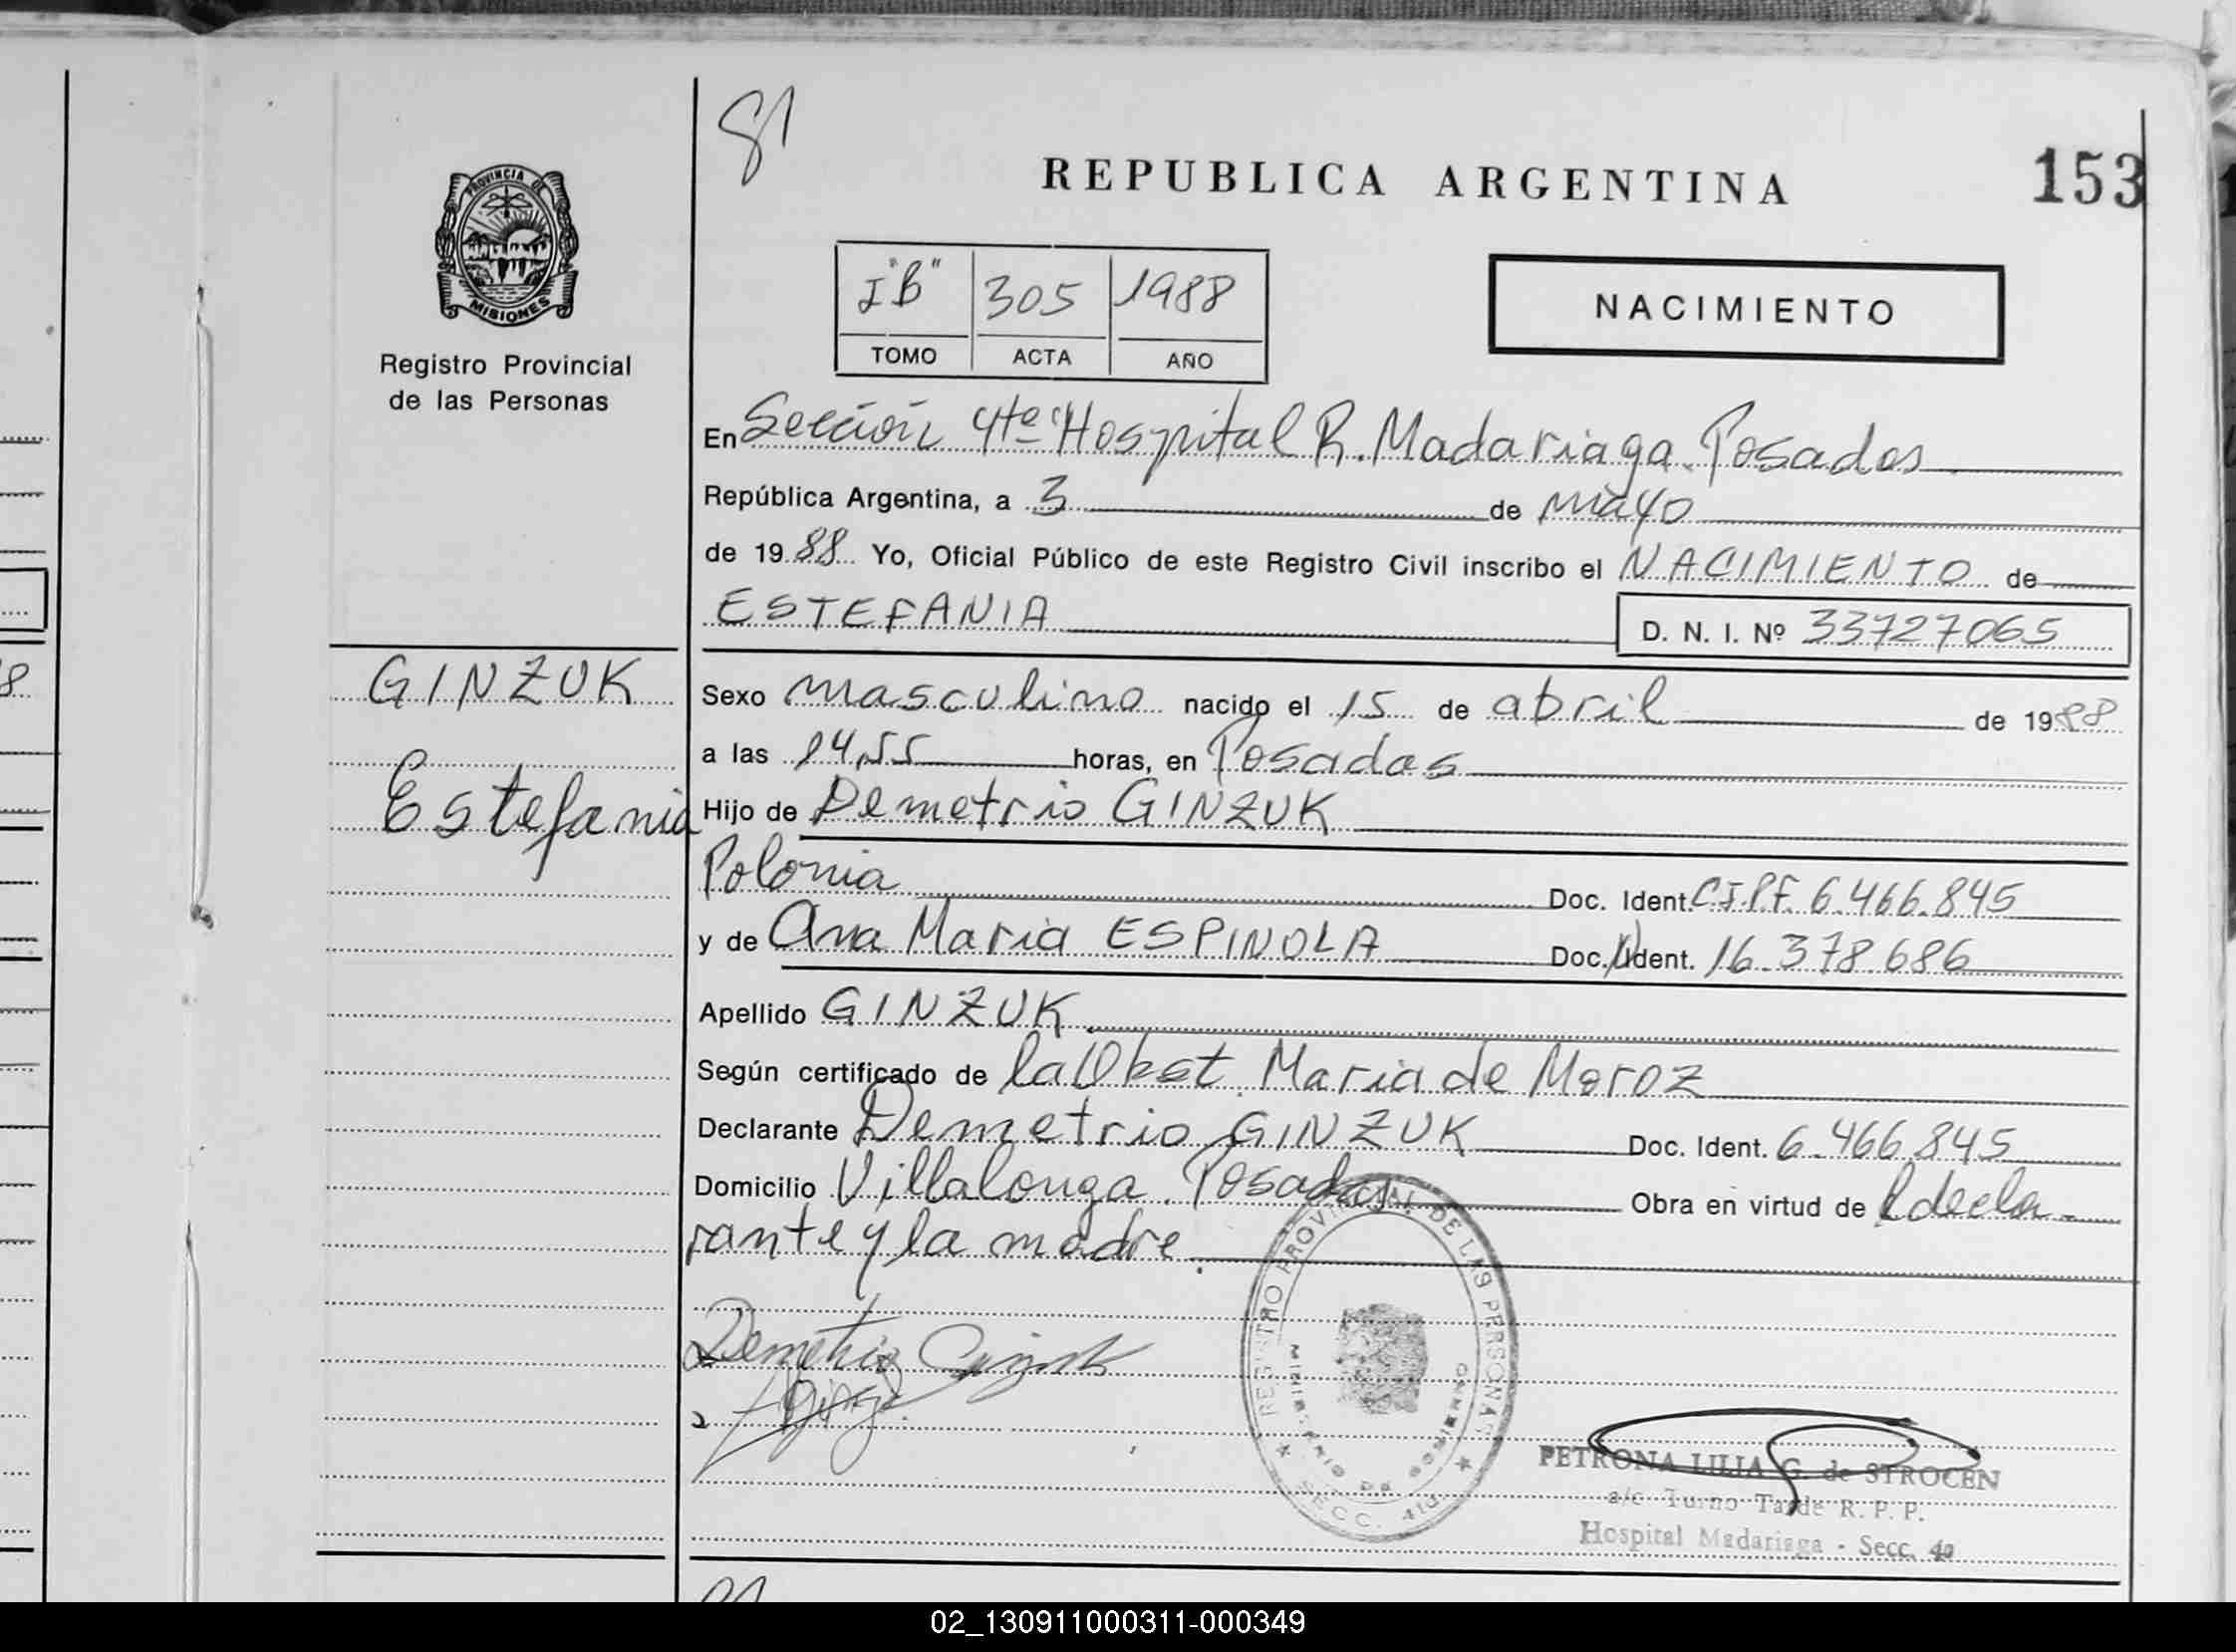 81
REPUBLICA ARGENTINA
153
PROVINCIA DE
MISIONES
Registro Provincial
de las Personas
I "B" 305 1988
TOMO ACTA AÑO
NACIMIENTO
En Sección 4ta Hospital R. Madariaga. Posadas
República Argentina, a 3 de mayo
de 1988 Yo, Oficial Público de este Registro Civil inscribo el NACIMIENTO de
ESTEFANIA
D. N. I. Nº 33727065
GINZUK
Estefania
Sexo masculino nacido el 15 de abril de 1988
a las 14,55 horas, en Posadas
Hijo de Demetrio GINZUK
Polonia Doc. Ident. C.I.P.F. 6.466.845
y de Ana Maria ESPINOLA Doc. Ident. 16.378.686
Apellido GINZUK
Según certificado de la Obst. Maria de Moroz
Declarante Demetrio GINZUK Doc. Ident. 6.466.845
Domicilio Villalonga. Posadas Obra en virtud de l decla-
rante y la madre.
Demetrio Ginzuk
REGISTRO PROVINCIAL DE LAS PERSONAS
MINISTERIO DE GOBIERNO
SECC. 4ta.
PETRONA LILIA G. de STROCEN
a/c Turno Tarde R. P. P.
Hospital Madariaga - Secc. 4a
02_130911000311-000349